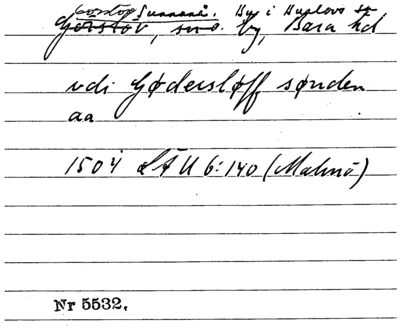 Gorstop Sunnanå. Huj i Husie sn
Görslöv, sn o. by, Bara hd
vdi Gødersløff sønden
aa
1504 LÅU 6:140 (Malmö)
Nr 5532.